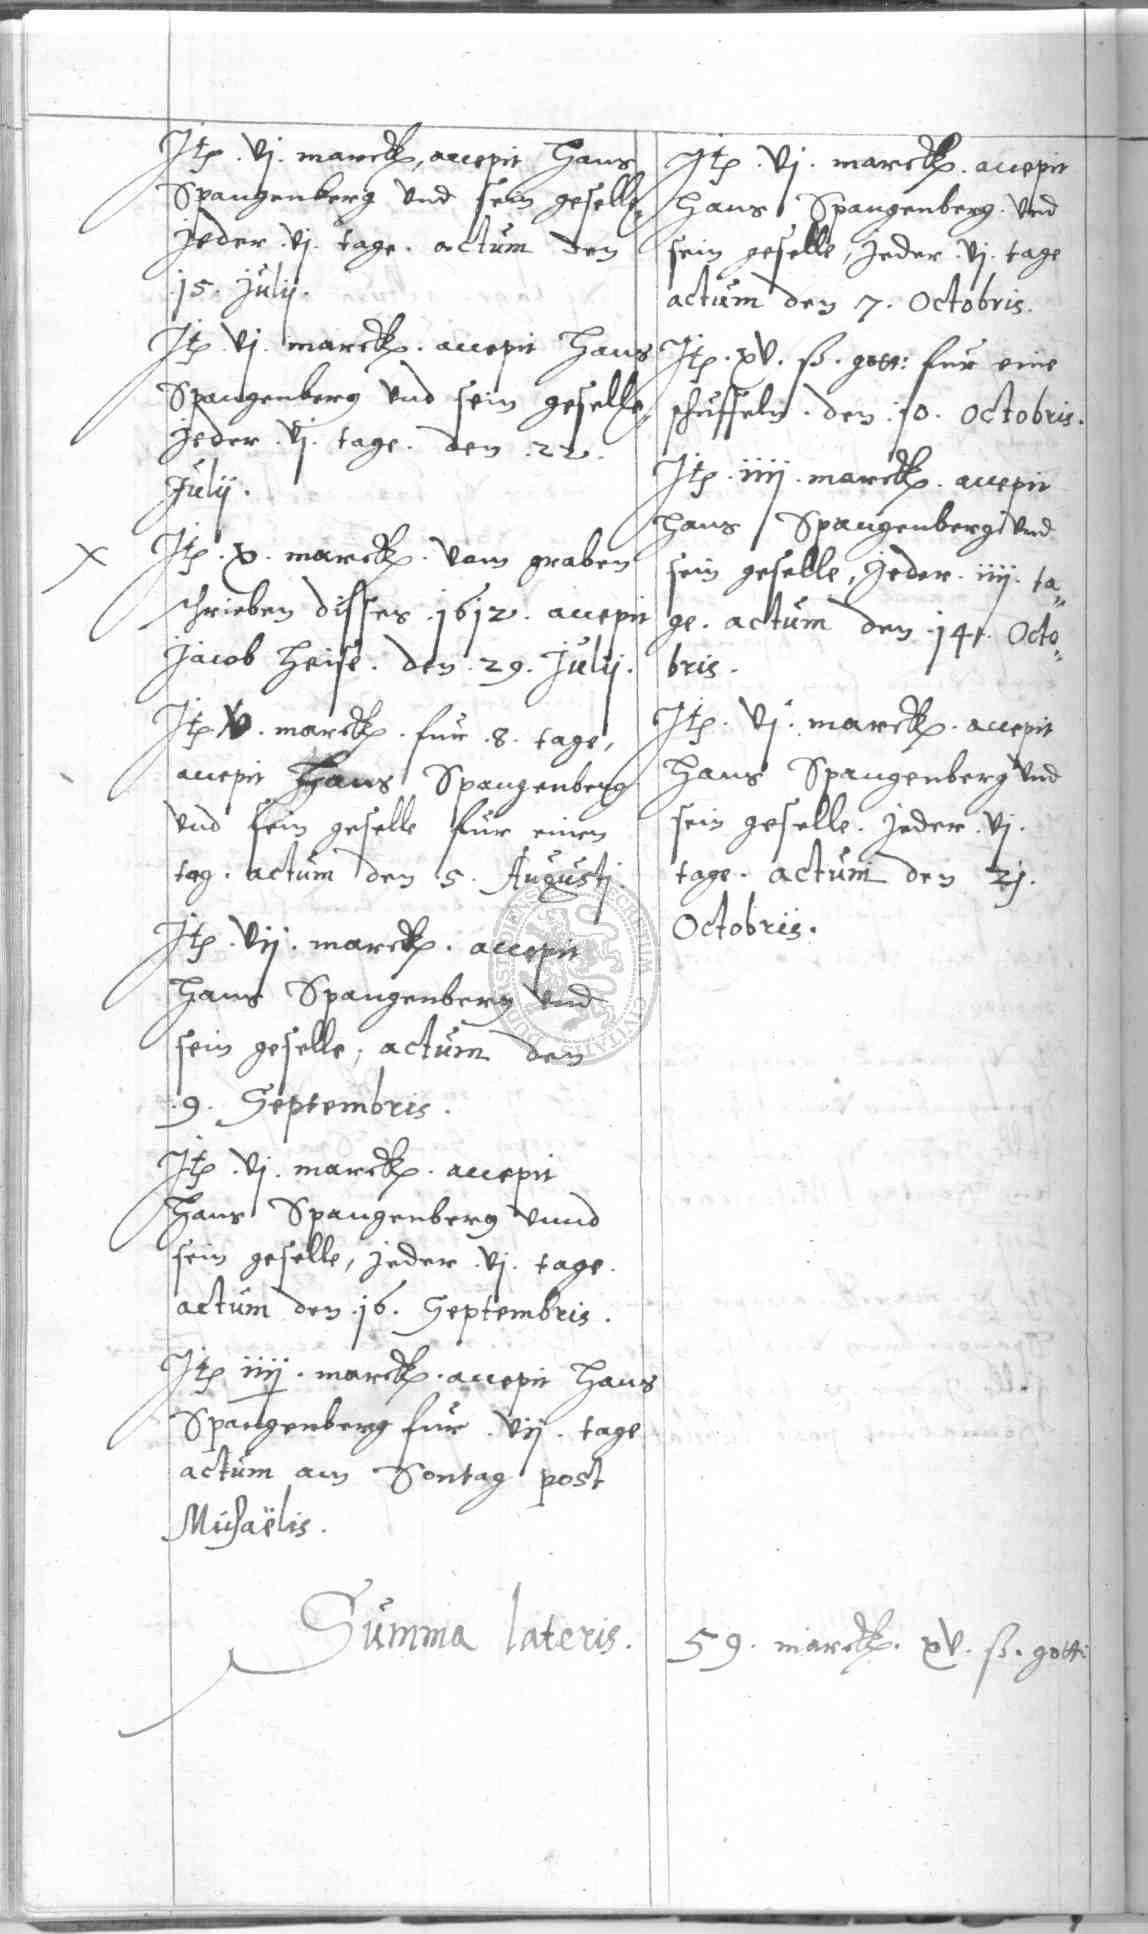 Jtē .vj. marckē, accepit Hans
Spangenberg vnd sein geselle,
jeder .vj. tage. actum den
.15. Julij.
Jtē .vj. marckē. accepit Hans
Spangenberg vnd sein geselle,
jeder .vj. tage. den .22.
Julij.
Jtē .x. marckē. vom graben
schrieben disses .1612. accepit
Jacob Heise. den .29. Julij.
Jtē. marckē. fur .8. tage,
accepit Hans Spangenberg
vnd sein geselle fur einen
tag. actum den 5. Augustj.
Jtē .vij. marckē. accepit
Hans Spangenberg vnd
sein geselle, actum den
.9. Septembris.
Jtē .vj. marckē. accepit
Hans Spangenberg vnnd
sein geselle, jeder .vj. tage.
actum den .16. Septembris.
Jtē iiij. marckē. accepit Hans
Spangenberg fur .vij. tage
actum am Sontag post
Michaëlis.
Jtē .vj. marckē. accepit
Hans Spangenberg. vnd
sein geselle, jeder .vj. tage
actum den 7. Octobris.
Jtē .xv. ß. gott: fur eine
schuffeln. den .10. Octobris.
Jtē .iiij. marckē. accepit
Hans Spangenberg vnd
sein geselle, jeder. iiij. ta„
ge. actum den .14. Octo„
bris.
Jtē. vj. marckē. accepit
Hans Spangenberg vnd
sein geselle. jeder .vj.
tage. actum den 21.
Octobris.
Summa lateris. 59. marckē. xv. ß. gott: